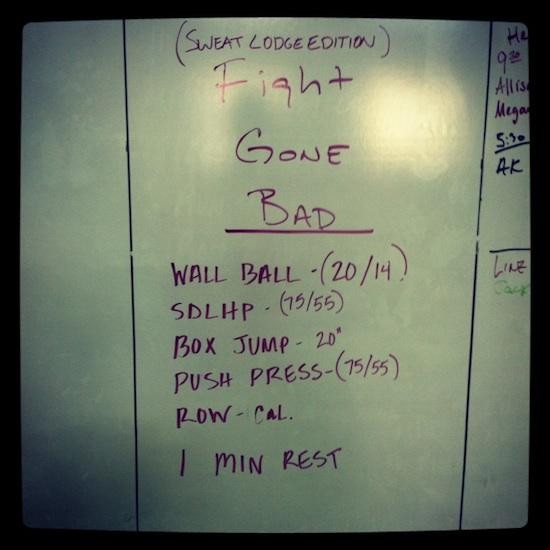 (SWEAT LODGE EDITION)
Fight
GONE
BAD
WALL BALL - (20/14)
SDLHP - (75/55)
BOX JUMP - 20"
PUSH PRESS - (75/55)
ROW - CAL.
1 MIN REST
9:30
5:30
AK
LINE